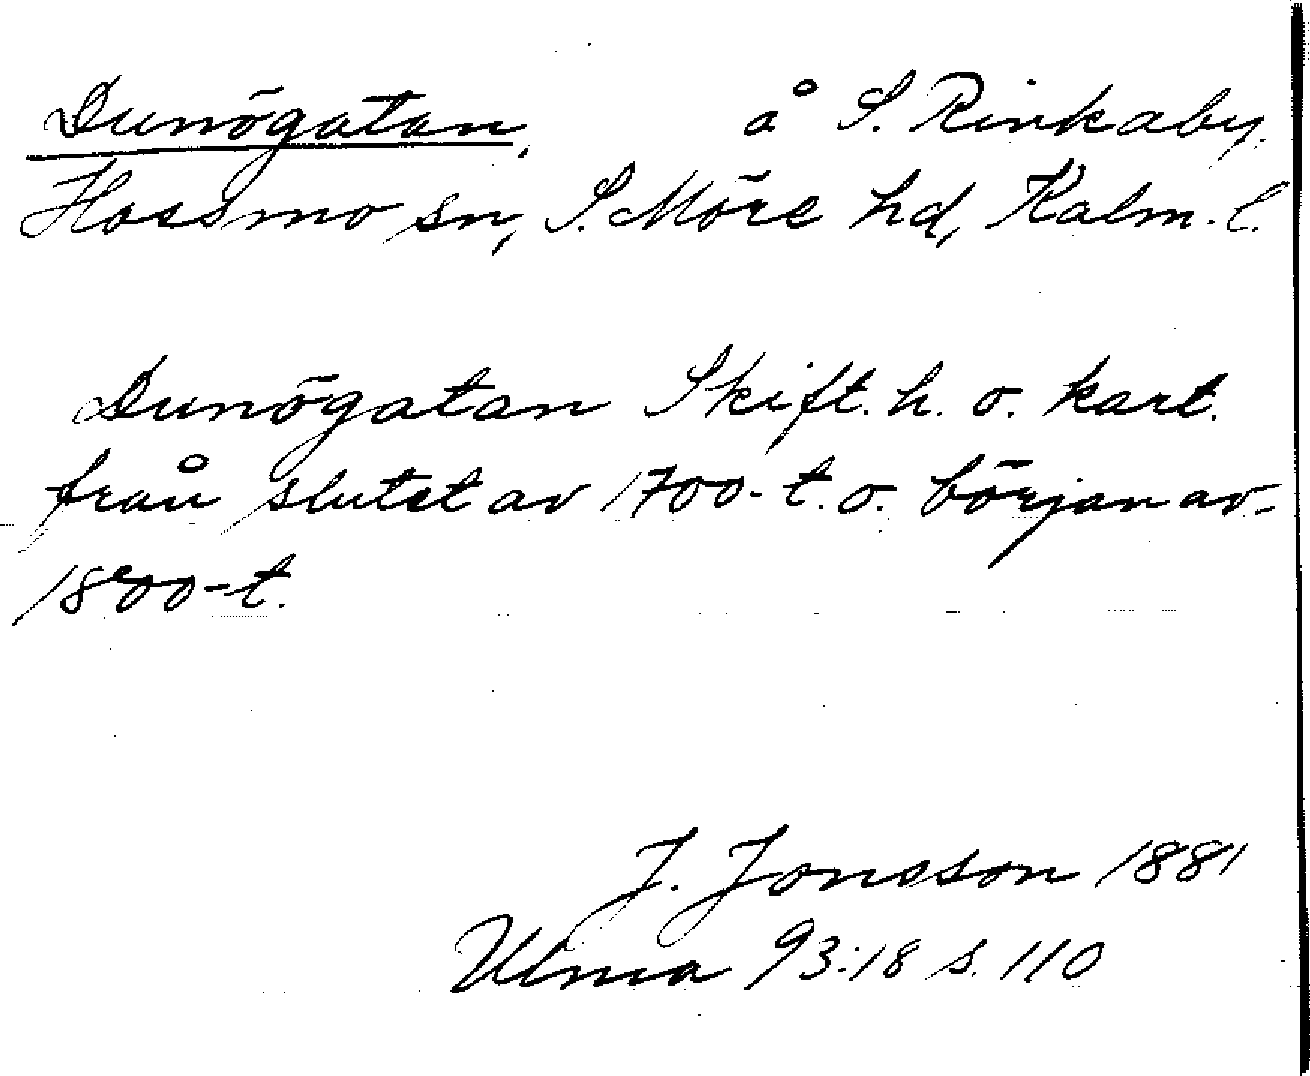 Dunögatan, å S. Rinkaby,
Hossmo sn, S. Möre hd, Kalm. l.
Dunögatan Skift. h. o. kart.
från slutet av 1700-t. o. början av
1800-t.
J. Jonsson 1881
Ulma 93:18 s. 110